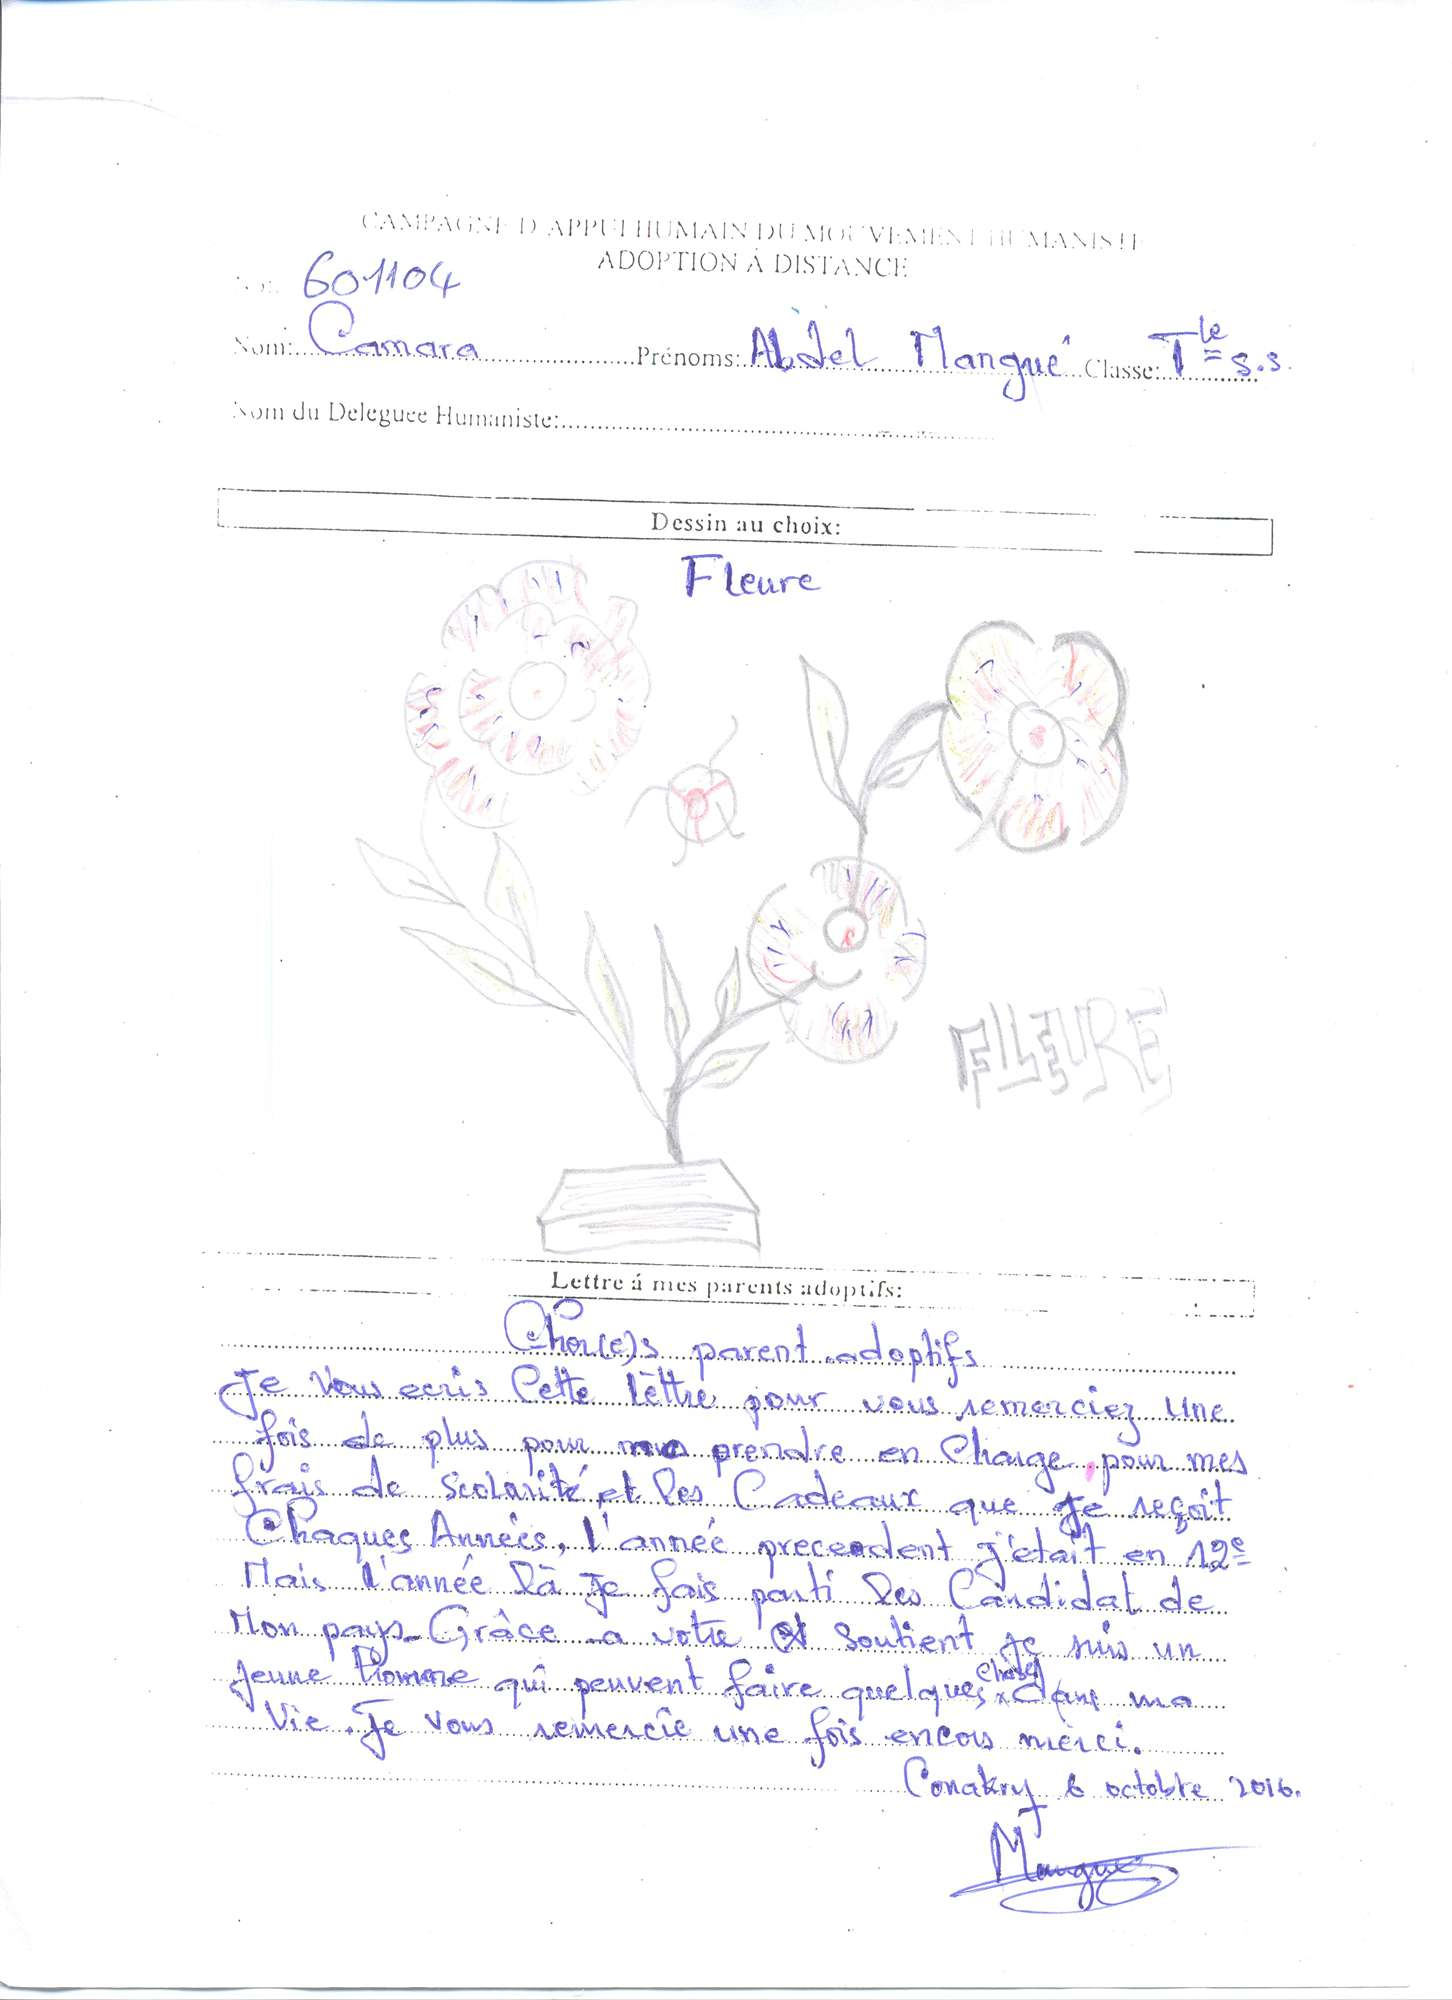 CAMPAGNE D'APPUI HUMAIN DU MOUVEMENT HUMANISTE
ADOPTION Á DISTANCE
601104
Nom: Camara Prénoms: Abdel Mangué Classe: Tle s.s
Nom du Deleguee Humaniste:
Dessin au choix:
Fleure
FLEURE
Lettre á mes parents adoptifs:
Cher(e)s parent adoptifs
Je vous ecris Cette lèttre pour vous remerciez une
fois de plus pour prendre en Charge pour mes
frais de Scolarité et les Cadeaux que je reçoit
Chaques Années, l'année precedent j'était en 12e
Mais l'année là je fais parti les Candidat de
Mon pays. Grâce a votre soutient je suis un
jeune homme qui peuvent faire quelques choses dans ma
Vie. Je vous remercie une fois encors merci.
Conakry 6 octobre 2016.
Mangue